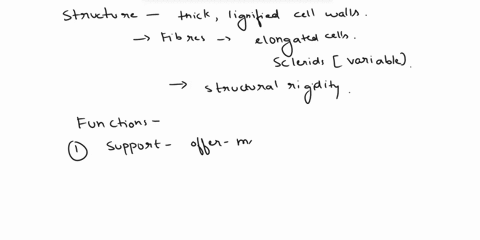 Structure - thick, lignified cell walls.
→ Fibres → elongated cells.
Sclerids [variable).
→ structural rigidity.
Functions -
① Support - offer- m